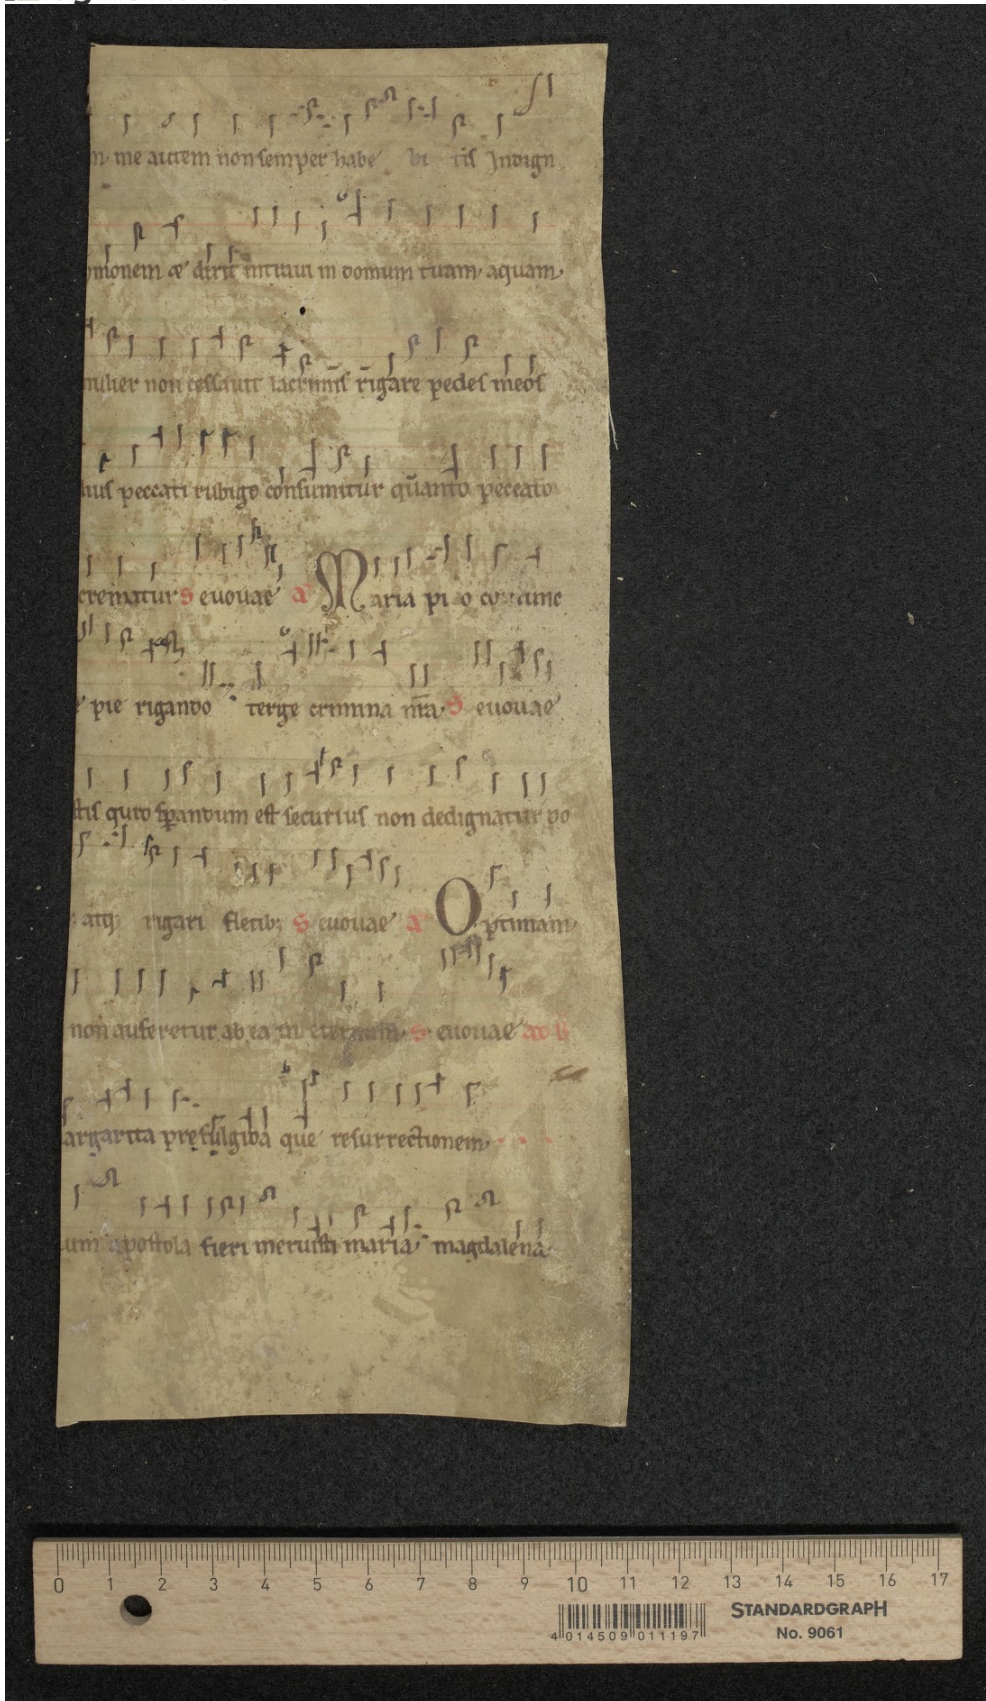 me autem non semper habe bi tis Indign
monem & dixit intraui in domum tuam aquam
mulier non cessauit lacrimis rigare pedes meos
lius peccati rubigo consumitur quanto peccato
crematur S euouae a Maria pi o
pie rigando terge crimina nra S euouae
stis quro spandum est securius non dedignatur po
atq; rigari fletib; S euouae a Optimam
non auferetur ab ea in eternum S euouae ad b
argarita prefulgida que resurrectionem
um apostola fieri meruisti maria magdalena
0 1 2 3 4 5 6 7 8 9 10 11 12 13 14 15 16 17
STANDARDGRAPH
No. 9061
4 014509 011197